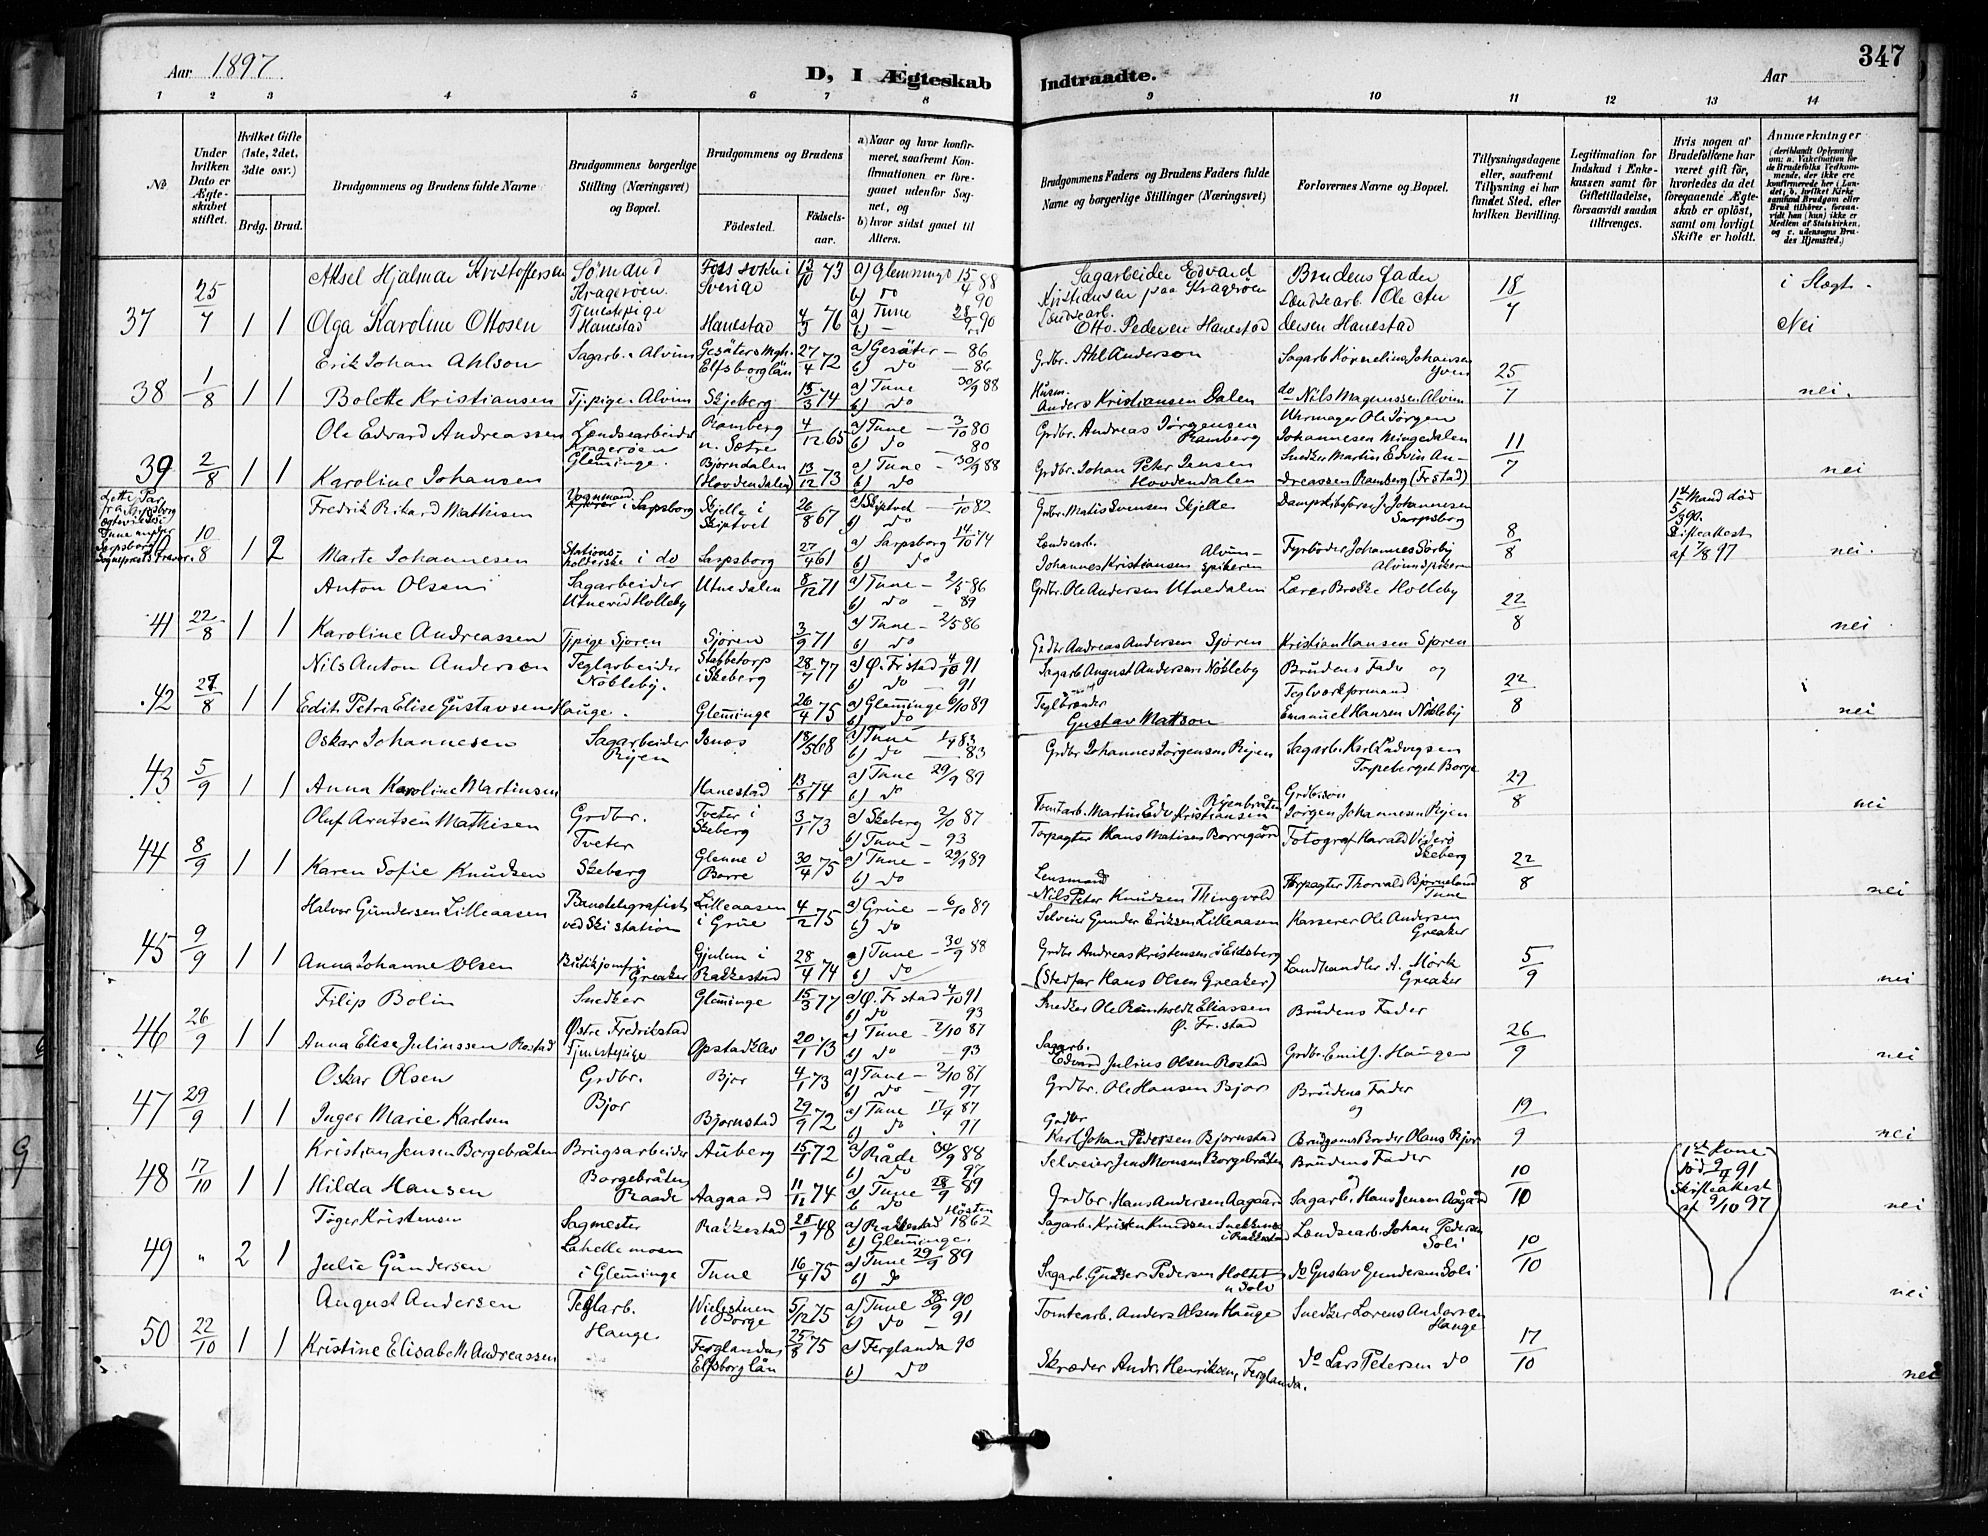 Aar 1897.
D, I Ægteskab
Indtraadte.
Aar
347
1 2 3 4 5 6 7 8 9 10 11 12 13 14
No.
Under hvilken Dato er Ægteskabet stiftet.
Hvilket Gifte (1ste, 2det, 3die osv.)
Brdg. Brud.
Brudgommens og Brudens fulde Navne
Brudgommens borgerlige Stilling (Næringsvei) og Bopæl.
Brudgommens og Brudens
Fødested.
Fødselsaar.
a) Naar og hvor konfirmeret, saafremt Konfirmationen er foregaaet udenfor Sognet, og
b) hvor sidst gaaet til Alters.
Brudgommens Faders og Brudens Faders fulde Navne og borgerlige Stillinger (Næringsvei)
Forlovernes Navne og Bopæl.
Tillysningsdagene eller, saafremt Tillysning ei har fundet Sted, efter hvilken Bevilling.
Legitimation for Indskud i Enkekassen samt for Giftetilladelse, forsaavidt saadan tiltrænges.
Hvis nogen af Brudefolkene har været gift før, hvorledes da det foregaaende Ægteskab er opløst, samt om lovligt Skifte er holdt.
Anmærkninger
37 25/7 1 1
Aksel Hjalmar Kristoffersen Sømand Kragerøen. Foss sokn i Sverige 13/10 73 a) Glemminge 15/4 88 b) do 90 Sagarbeider Edvard Kristiansen paa Kragerøen Brudens Fader 18/7 i Slægt.
Olga Karoline Ottosen Tjenestepige Hanestad Hanestad 4/3 76 a) Tune 28/9 90 b) – Løndsearb. Otto Pedersen Hanestad Løndsearb. Ole Andersen Hanestad Nei
38 1/8 1 1
Erik Johan Ahlson Sagarb. Alvim Gesäters Mgh. Elfsborglän 27/4 72 a) Gesäter – 86 b) do – 86 Grdbr. Ahl Anderson Sagarb. Kornelius Johansen Yven 25/7
Bolette Kristiansen Tj.pige. Alvim Skjeberg 15/3 74 a) Tune 30/9 88 b) do Husm. Anders Kristiansen Dalen do Nils Magnussen Alvim nei.
39 2/8 1 1
Ole Edvard Andreassen Løndsearbeider Kragerøen Glemminge. Ramberg n. Sætre 4/12 65 a) Tune – 3/10 80 b) do 80 Grdbr. Andreas Jørgensen Ramberg Uhrmager Ole Jørgen Johannesen Mingedalen 11/7
Karoline Johansen Bjørndalen (Hovdendalen) 13/12 73 a) Tune – 30/9 88 b) do Grdbr. Johan Peter Jensen Hovdendalen Snedker Martin Edvin Andreassen Ramberg (Fr.stad) nei
10/8 1 2
Fredrik Rikard Mathisen Vognmand i Sarpsborg Skjelle i Skiptvet 26/8 67 a) Skiptvet – 1/10 82 b) do Grdbr. Matis Svensen Skjelle Dampskibsfører J. Johannesen Sarpsborg 8/8 1ste Mand død 5/3 90. Skifteattest af 7/8 97
Marte Johannesen Stationsholderske i do Sarpsborg 27/4 61 a) Sarpsborg 14/10 74 b) do Løndsearb. Johannes Kristiansen Alvimspikeren Fyrbøder Johannes Sørby Alvimspikeren nei.
41 22/8 1 1
Anton Olsen Sagarbeider Utne ved Holleby Utnedalen 8/12 71 a) Tune – 2/5 86 b) do – 89 Grdbr. Ole Andersen Utnedalen Lærer Brekke Holleby 22/8
Karoline Andreassen Tj.pige Sjøren Sjøren 3/9 71 a) Tune – 2/5 86 b) do Grdbr Andreas Andersen Sjøren Kristian Hansen Sjøren nei
42 28/8 1 1
Nils Anton Andersen Teglarbeider Nøbleby. Stabbetorp i Skeberg 28/7 77 a) Ø. Fr.stad 4/10 91 b) do – 91 Sagarb. August Andersen Nøbleby Brudens Fader og 22/8
Edith Petra Elise Gustavsen Hauge. Glemminge 26/4 75 a) Glemminge 6/10 89 b) do Teglbrænder Gustav Mattson Teglverksformand Emanuel Hansen Nøbleby nei
43 5/9 1 1
Oskar Johannesen Sagarbeider Rijen Isnes 18/5 68 a) Tune – 1/4 83 b) do – 83 Grdbr Johannes Jørgensen Rijen Sagarb. Karl Ludvigsen Torpeberget Borge 29/8
Anna Karoline Martinsen Hanestad 13/8 74 a) Tune 29/9 89 b) do Tomtarb. Martin Edv. Kristiansen Rijenbråten Grdbr.søn Jørgen Johannesen Rijen nei
44 8/9 1 1
Oluf Arntsen Mathisen Grdbr. Tveter Tveter i Skeberg 3/1 73 a) Skeberg 2/10 87 b) Tune – 93 Forpagter Hans Matisen Borregård Fotograf Harald Viderø Skeberg 22/8
Karen Sofie Knudsen Skeberg Glenne i Borre 30/4 75 a) Tune – 29/9 89 b) do Lensmand Nils Peter Knudsen Thingvold Forpagter Thorvald Bjørneland Tune nei
45 9/9 1 1
Halvor Gundersen Lilleaasen Banetelegrafist ved Ski station Lilleaasen i Grue 4/2 75 a) Grue – 6/10 89 b) do Selveier Gunder Eriksen Lilleaasen Kasserer Ole Andersen Greaker 5/9
Anna Johanne Olsen Butikjomfru Greaker Gjulun i Rakkestad 28/4 74 a) Tune – 30/9 88 b) do Grdbr Andreas Kristensen i Eidsberg (Stedfar Hans Olsen Greaker) Landhandler A. Mørk Greaker nei
46 26/9 1 1
Filip Bolin Snedker Østre Fredrikstad Glemminge 15/3 77 a) Ø. Fr.stad 4/10 91 b) do 93 Snedker Ole Reinholdt Eliassen Ø. Fr.stad Brudens Fader 26/9
Anna Elise Juliussen Rostad Tjenestepige Opstadklev 20/1 73 a) Tune – 2/10 87 b) do – 93 Sagarb. Edvard Julius Olsen Rostad Grdbr. Emil J. Haugen nei
47 29/9 1 1
Oskar Olsen Grdbr. Bjor Bjor 4/1 73 a) Tune – 2/10 87 b) do – 97 Grdbr. Ole Hansen Bjor Brudens Fader og 19/9
Inger Marie Karlsen Bjørnstad 29/9 72 a) Tune 17/4 87 b) do 91 Grdbr Karl Johan Pedersen Bjørnstad Brudgoms Broder Olaus Bjor nei
48 17/10 1 1
Kristian Jensen Borgebråten Brugsarbeider Borgebråten Raade Auberg 15/1 72 a) Råde 30/9 88 b) do 97 Selveier Jens Monsen Borgebråten Brudens Fader 10/10
Hilda Hansen Aagaard 11/11 74 a) Tune 28/9 89 b) do Grdbr. Hans Andersen Aagaard Sagarb. Hans Jensen Aagård nei
49 " 2 1
Tøger Kristensen Sagmester Lahellemoen i Glemminge Rakkestad 25/9 48 a) Rakkestad Høsten 1862 b) Glemminge. Sagarb. Kristen Knudsen i Rakkestad Løndsearb. Johan Pedersen Soli 10/10 1ste Kone død 2/11 91 Skifteattest af 9/10 97
Julie Gundersen Tune 16/4 75 a) Tune 29/9 89 b) do Sagarb. Gunder Pedersen Holtet u. Soli do Gustav Gundersen Soli nei
50 22/10 1 1
August Andersen Teglarb. Hauge. Wielstuen i Borge 5/12 75 a) Tune 28/9 90 b) do – 91 Tomtearb. Anders Olsen Hauge Snedker Lorens Andersen Hauge 17/10
Kristine Elisabeth Andreassen Ferglanda Elfsborglän 25/8 75 a) Ferglanda 90 b) do Skræder Andr. Henriksen, Ferglanda. do Lars Petersen do nei